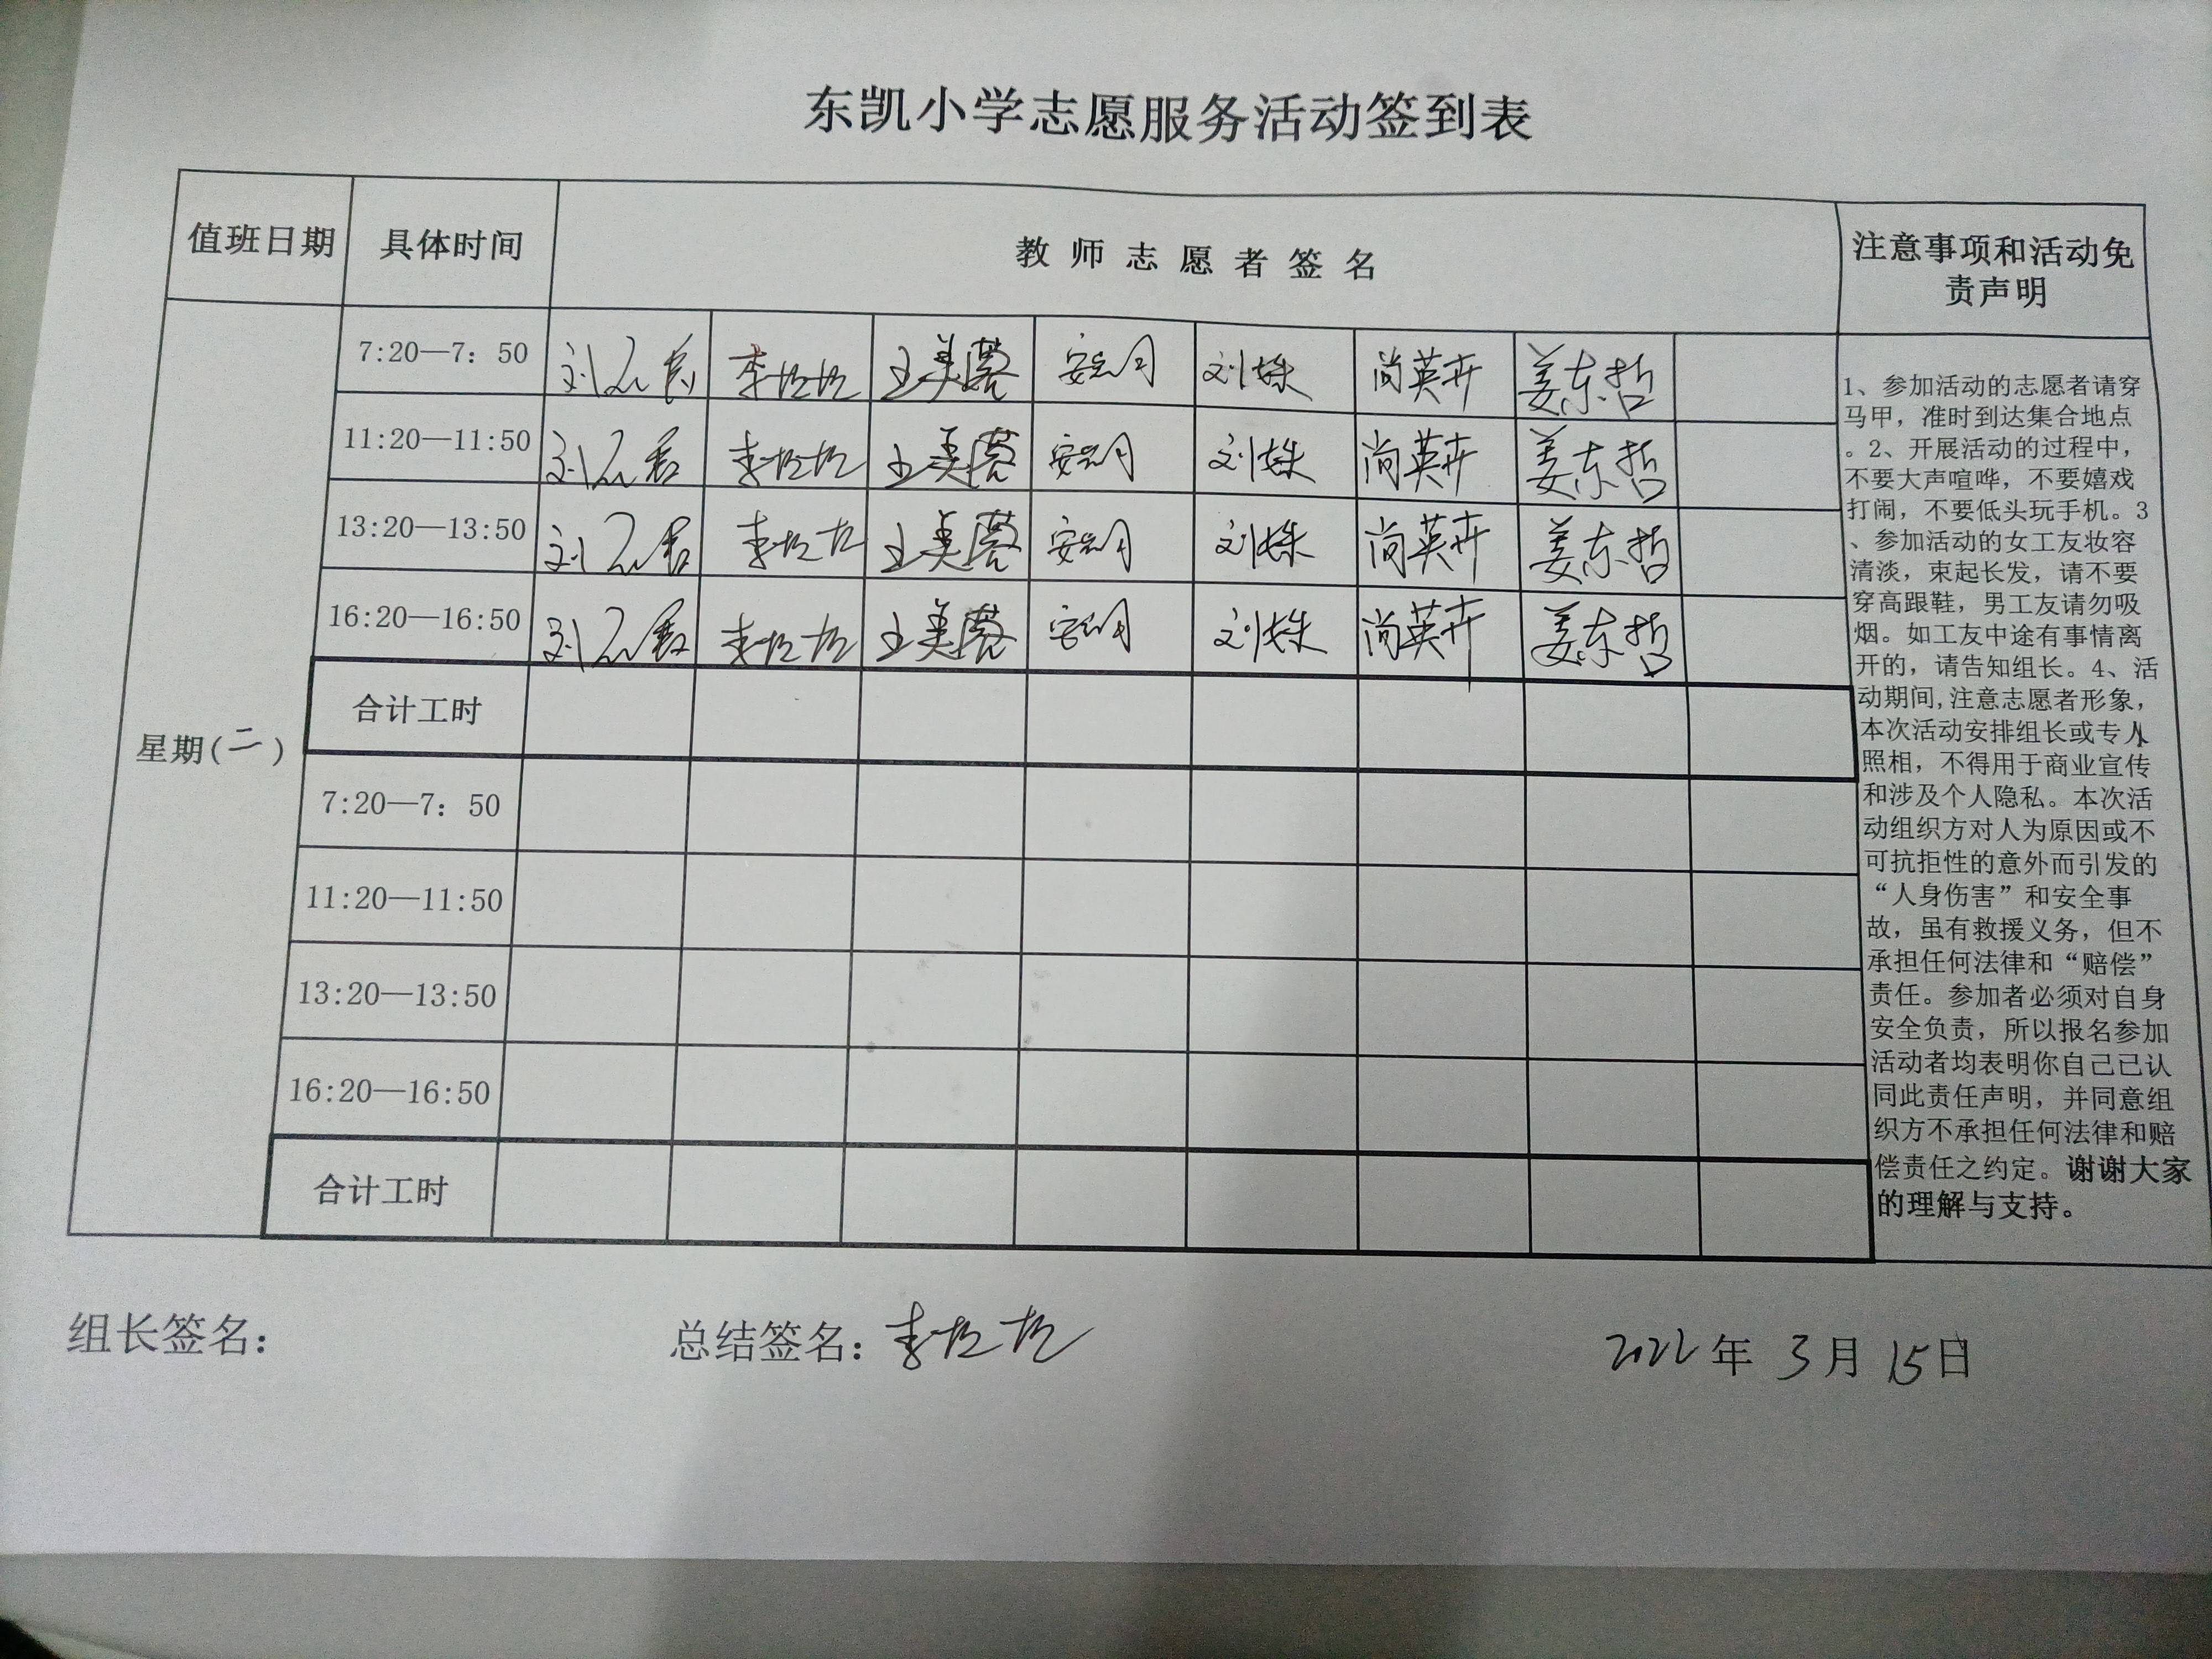 东凯小学志愿服务活动签到表
值班日期 具体时间 教师志愿者签名 注意事项和活动免
责声明
7:20—7：50 李 王美 安 刘姝 尚英卉 姜东哲
11:20—11:50 李 王美 安 刘姝 尚英卉 姜东哲
13:20—13:50 李 王美 安 刘姝 尚英卉 姜东哲
16:20—16:50 李 王美 安 刘姝 尚英卉 姜东哲
合计工时
星期(二)
7:20—7：50
11:20—11:50
13:20—13:50
16:20—16:50
合计工时
1、参加活动的志愿者请穿
马甲，准时到达集合地点
。2、开展活动的过程中，
不要大声喧哗，不要嬉戏
打闹，不要低头玩手机。3
、参加活动的女工友妆容
清淡，束起长发，请不要
穿高跟鞋，男工友请勿吸
烟。如工友中途有事情离
开的，请告知组长。4、活
动期间,注意志愿者形象，
本次活动安排组长或专人
照相，不得用于商业宣传
和涉及个人隐私。本次活
动组织方对人为原因或不
可抗拒性的意外而引发的
“人身伤害”和安全事
故，虽有救援义务，但不
承担任何法律和“赔偿”
责任。参加者必须对自身
安全负责，所以报名参加
活动者均表明你自己已认
同此责任声明，并同意组
织方不承担任何法律和赔
偿责任之约定。谢谢大家
的理解与支持。
组长签名： 总结签名：李 2022年 3月 15日